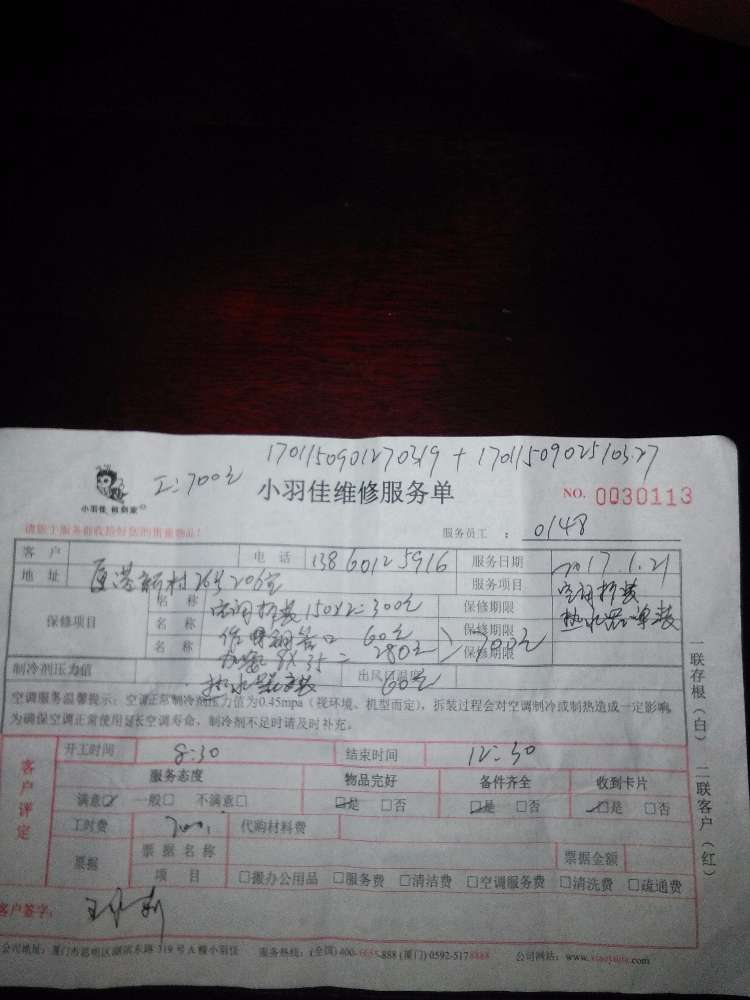 1701150901270319 + 1701150902510327
工:700元
小羽佳维修服务单
NO. 0030113
小羽佳 到家
请您于服务前收拾好您的贵重物品!
服务员工 : 0148
客户 电话 13860125916 服务日期 2017.1.21
地址 厦港新村26号206室 服务项目 空调拆装
热水器单装
保修项目 名称 空调拆装150X2=300元 保修期限
名称 60元 保修期限
名称 加氟 8X35=280元 保修期限 700元
制冷剂压力值 热水器安装 出风口温度 60元
空调服务温馨提示:空调正常制冷剂压力值为0.45mpa(视环境、机型而定),拆装过程会对空调制冷或制热造成一定影响,
为确保空调正常使用延长空调寿命,制冷剂不足时请及时补充。
客户评定
开工时间 8:30 结束时间 12:30
服务态度 物品完好 备件齐全 收到卡片
满意☑ 一般□ 不满意□ ☑是 □否 ☑是 □否 ☑是 □否
工时费 700 代购材料费
票据 票据名称 票据金额
项目 □搬办公用品 □服务费 □清洁费 □空调服务费 □清洗费 □疏通费
客户签字:
公司地址:厦门市思明区湖滨东路319号A幢小羽佳 服务热线:(全国)400-6655-888 (厦门)0592-5178888 公司网站:www.xiaoyujia.com
一联存根(白) 二联客户(红)